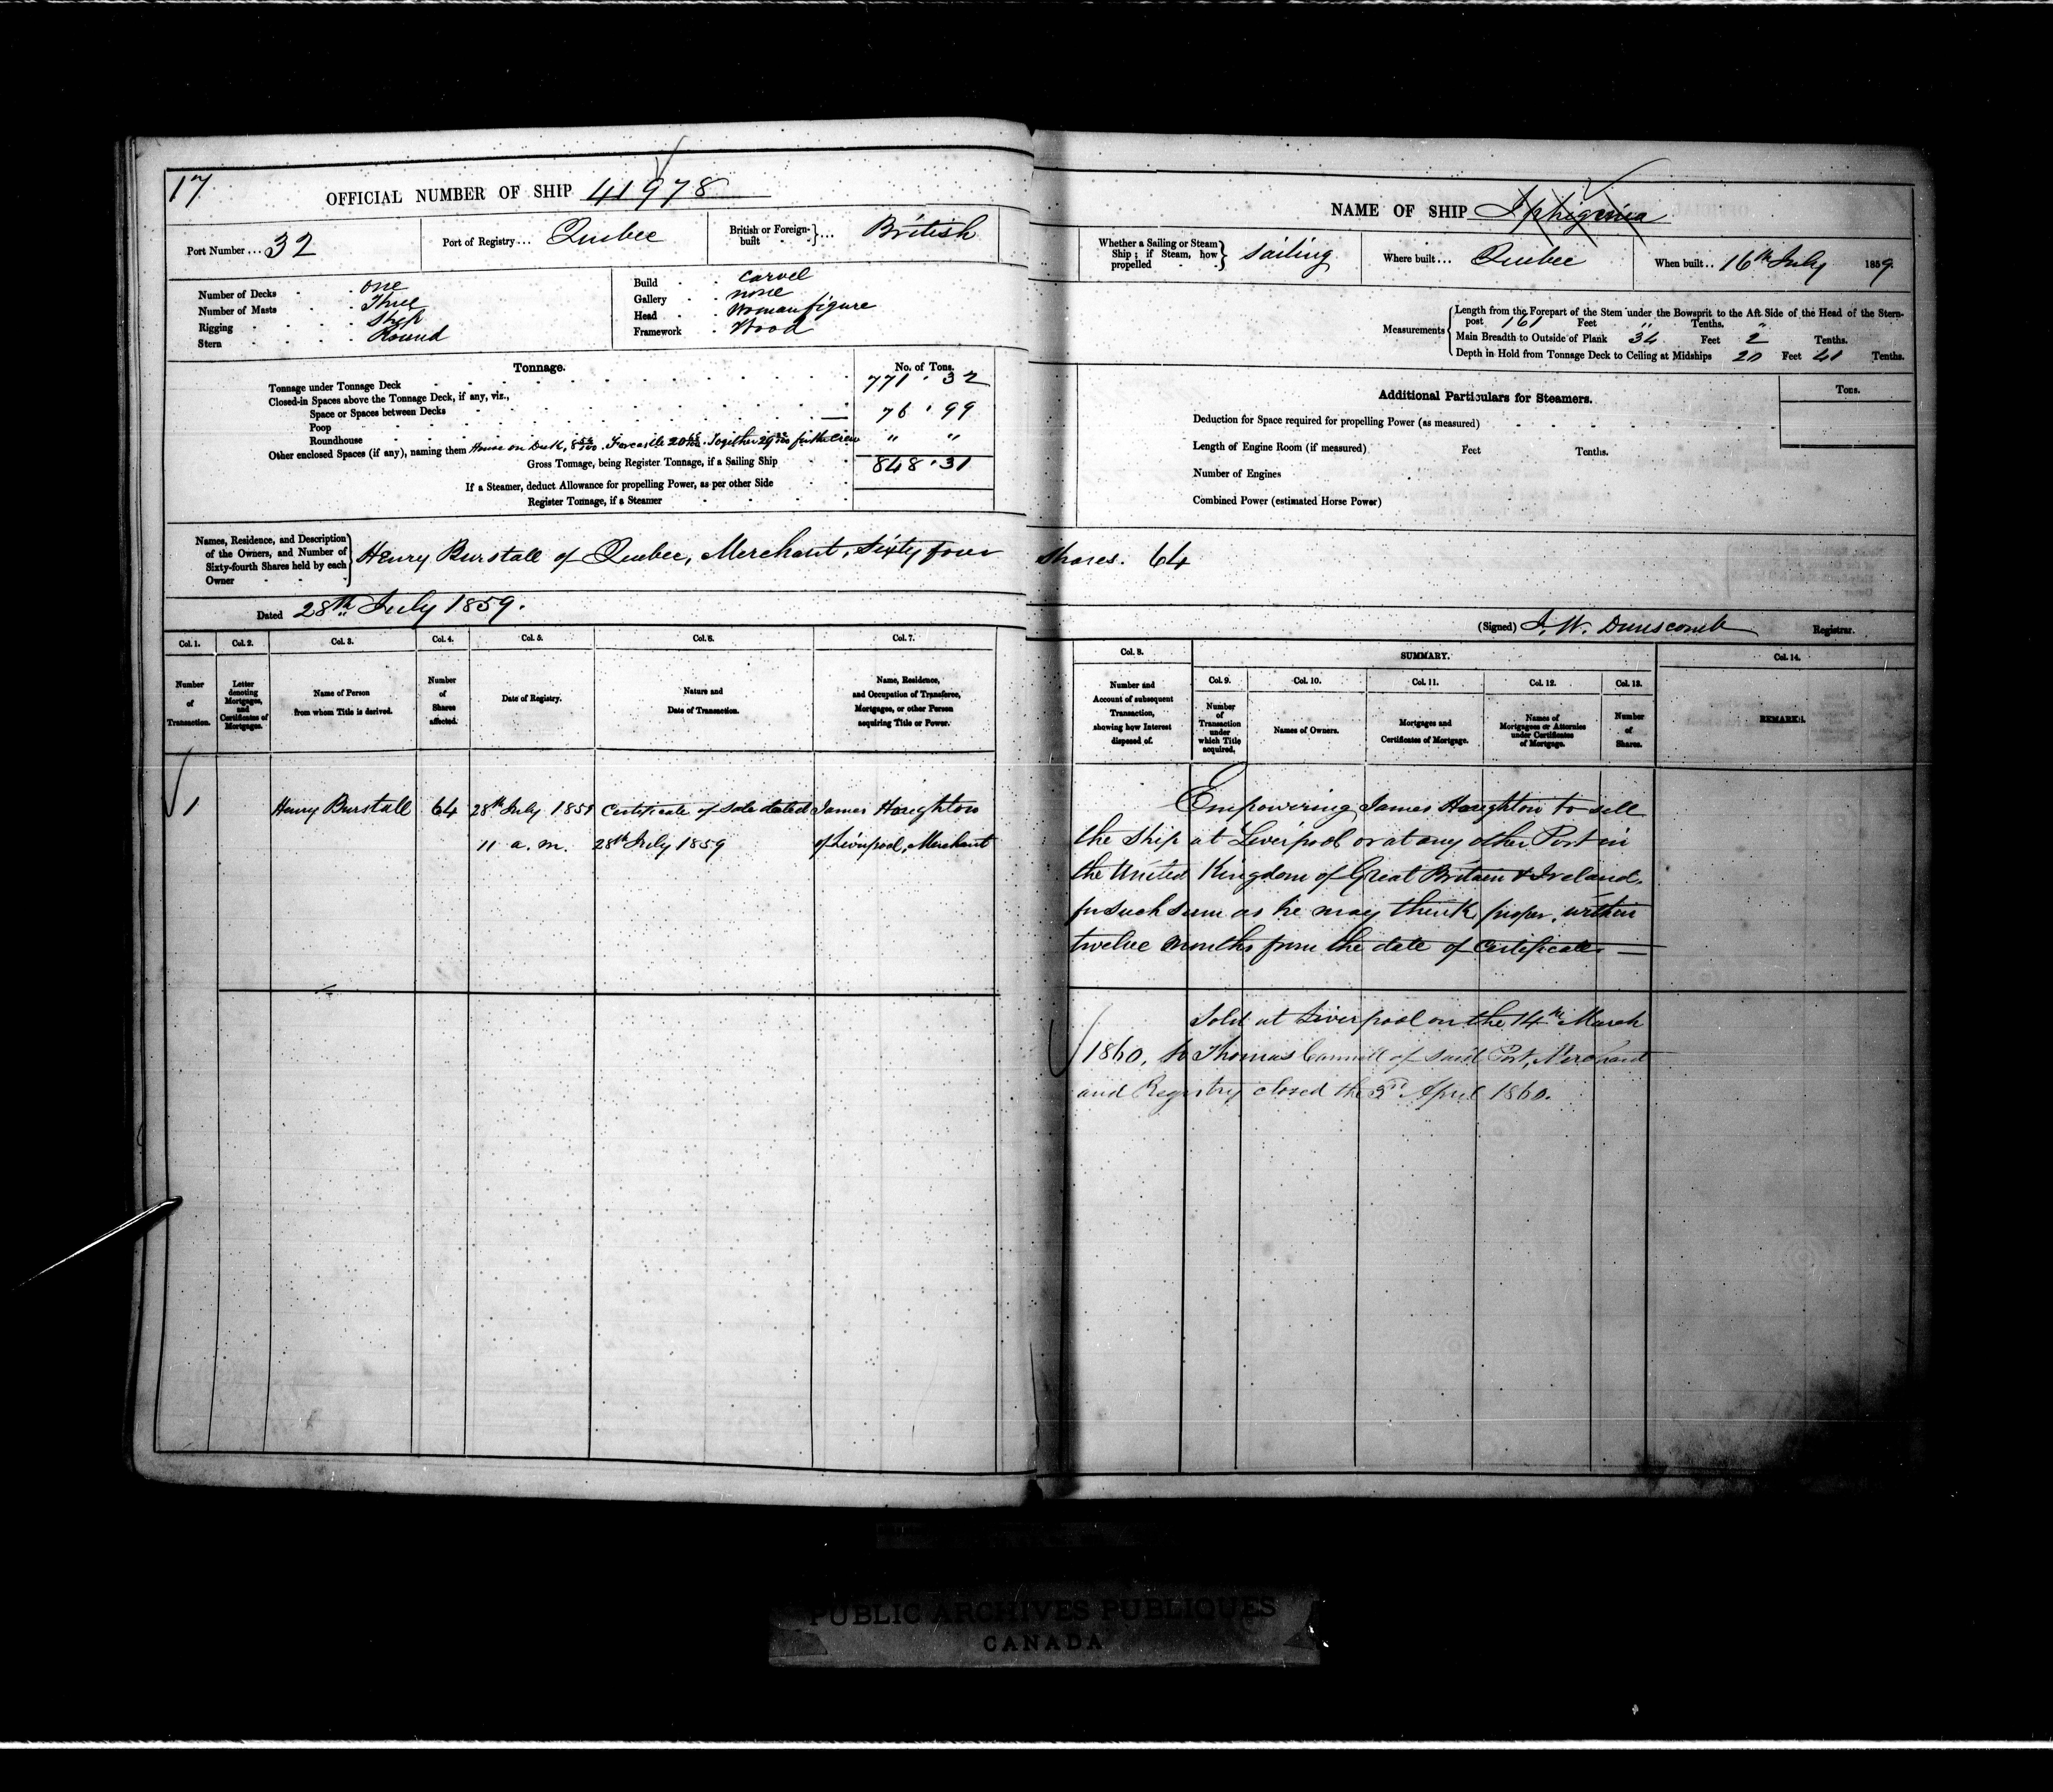 17
OFFICIAL NUMBER OF SHIP 41978
Port Number ... 32
Port of Registry ... Quebec
British or Foreign-built ... British
Number of Decks one
Number of Masts Three
Rigging Ship
Stern Round
Build carvel
Gallery none
Head Woman figure
Framework Wood
Tonnage.
No. of Tons.
Tonnage under Tonnage Deck 771 . 32
Closed-in Spaces above the Tonnage Deck, if any, viz.,
Space or Spaces between Decks 76 . 99
Poop —
Roundhouse " "
Other enclosed Spaces (if any), naming them House on Deck, Forecastle Together for the Crew
Gross Tonnage, being Register Tonnage, if a Sailing Ship 848 . 31
If a Steamer, deduct Allowance for propelling Power, as per other Side
Register Tonnage, if a Steamer
Names, Residence, and Description of the Owners, and Number of Sixty-fourth Shares held by each Owner
Henry Burstall of Quebec, Merchant, Sixty four
Dated 28th July 1859.
Col. 1. Col. 2. Col. 3. Col. 4. Col. 5. Col. 6. Col. 7.
Number of Transaction.
Letter denoting Mortgages, and Certificates of Mortgages.
Name of Person from whom Title is derived.
Number of Shares affected.
Date of Registry.
Nature and Date of Transaction.
Name, Residence, and Occupation of Transferee, Mortgagee, or other Person acquiring Title or Power.
1 Henry Burstall 64 28th July 1859 Certificate of Sale dated James Haughton
11 a.m. 28th July 1859 of Liverpool, Merchant
NAME OF SHIP Iphigenia
Whether a Sailing or Steam Ship; if Steam, how propelled sailing
Where built ... Quebec
When built .. 16th July 1859.
Measurements
Length from the Forepart of the Stem under the Bowsprit to the Aft Side of the Head of the Stern-
post 161 Feet " Tenths.
Main Breadth to Outside of Plank 34 Feet 2 Tenths.
Depth in Hold from Tonnage Deck to Ceiling at Midships 20 Feet 41 Tenths.
Additional Particulars for Steamers.
Tons.
Deduction for Space required for propelling Power (as measured)
Length of Engine Room (if measured) Feet Tenths.
Number of Engines
Combined Power (estimated Horse Power)
Shares. 64
(Signed) J. W. Dunscomb Registrar.
Col. 8. SUMMARY. Col. 14.
Col. 9. Col. 10. Col. 11. Col. 12. Col. 13.
Number and Account of subsequent Transaction, showing how Interest disposed of.
Number of Transaction under which Title acquired.
Names of Owners.
Mortgages and Certificates of Mortgage.
Names of Mortgagees or Attornies under Certificates of Mortgage.
Number of Shares.
REMARKS.
Empowering James Haughton to sell
the Ship at Liverpool or at any other Port in
the United Kingdom of Great Britain & Ireland,
for such sum as he may think proper, within
twelve months from the date of Certificate —
Sold at Liverpool on the 14th March
1860, to Thomas of said Port, Merchant
and Registry closed the 3rd April 1860.
PUBLIC ARCHIVES PUBLIQUES
CANADA